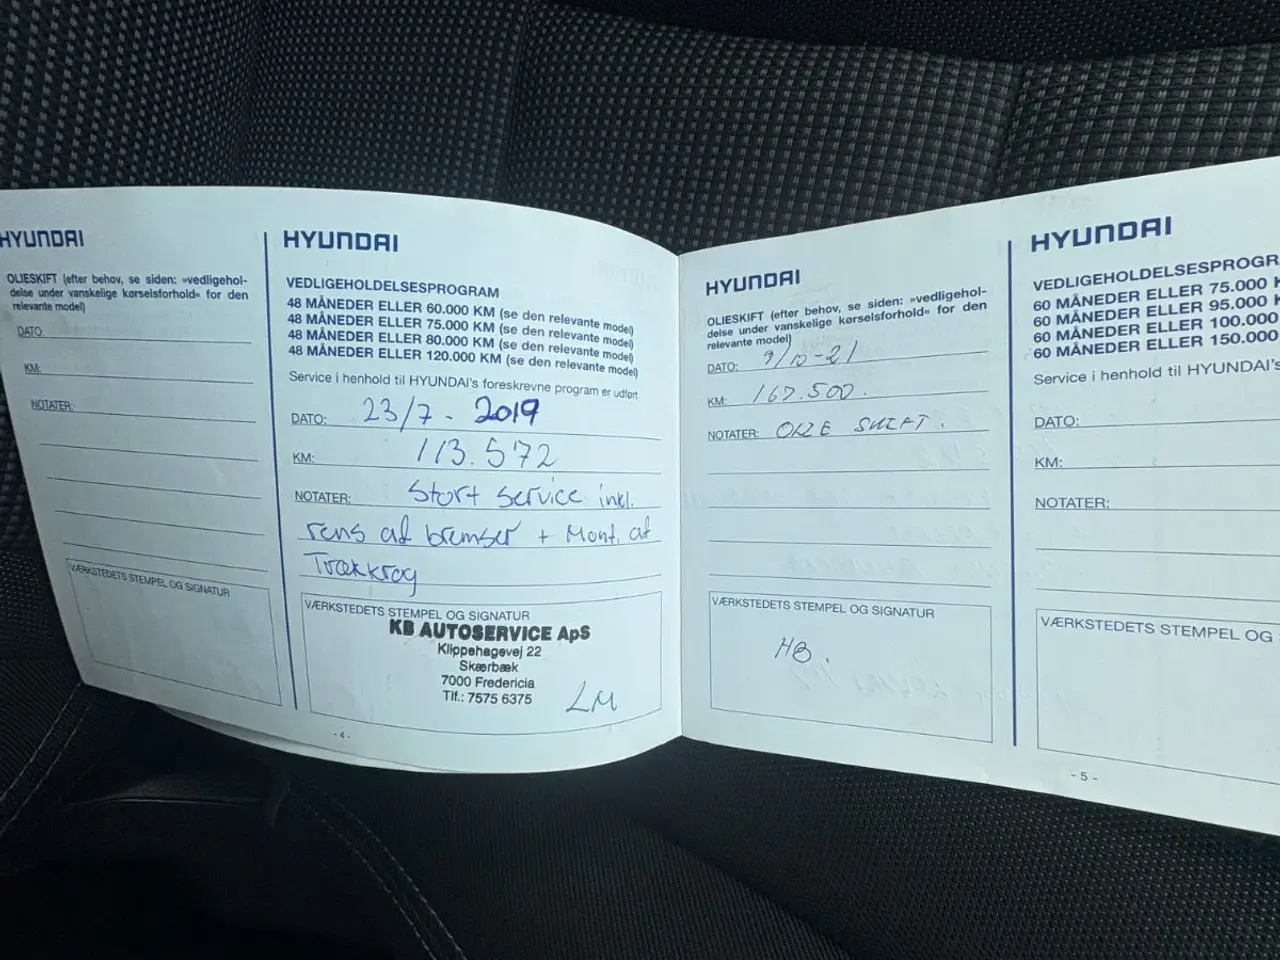 HYUNDAI
OLIESKIFT (efter behov, se siden: »vedligehol-
delse under vanskelige kørselsforhold« for den
relevante model)
DATO:
KM:
NOTATER:
VÆRKSTEDETS STEMPEL OG SIGNATUR
HYUNDAI
VEDLIGEHOLDELSESPROGRAM
48 MÅNEDER ELLER 60.000 KM (se den relevante model)
48 MÅNEDER ELLER 75.000 KM (se den relevante model)
48 MÅNEDER ELLER 80.000 KM (se den relevante model)
48 MÅNEDER ELLER 120.000 KM (se den relevante model)
Service i henhold til HYUNDAI's foreskrevne program er udført
DATO: 23/7 - 2019
KM: 113.572
NOTATER: Stort service inkl.
rens af bremser + Mont. af
Trækkrog
VÆRKSTEDETS STEMPEL OG SIGNATUR
KB AUTOSERVICE ApS
Klippehagevej 22
Skærbæk
7000 Fredericia
Tlf.: 7575 6375
LM
- 4 -
HYUNDAI
OLIESKIFT (efter behov, se siden: »vedligehol-
delse under vanskelige kørselsforhold« for den
relevante model)
DATO: 9/10-21
KM: 167.500.
NOTATER: OLIE SKIFT.
VÆRKSTEDETS STEMPEL OG SIGNATUR
HB.
HYUNDAI
VEDLIGEHOLDELSESPROGR
60 MÅNEDER ELLER 75.000 K
60 MÅNEDER ELLER 95.000 K
60 MÅNEDER ELLER 100.000
60 MÅNEDER ELLER 150.000
Service i henhold til HYUNDAI's
DATO:
KM:
NOTATER:
VÆRKSTEDETS STEMPEL OG
- 5 -